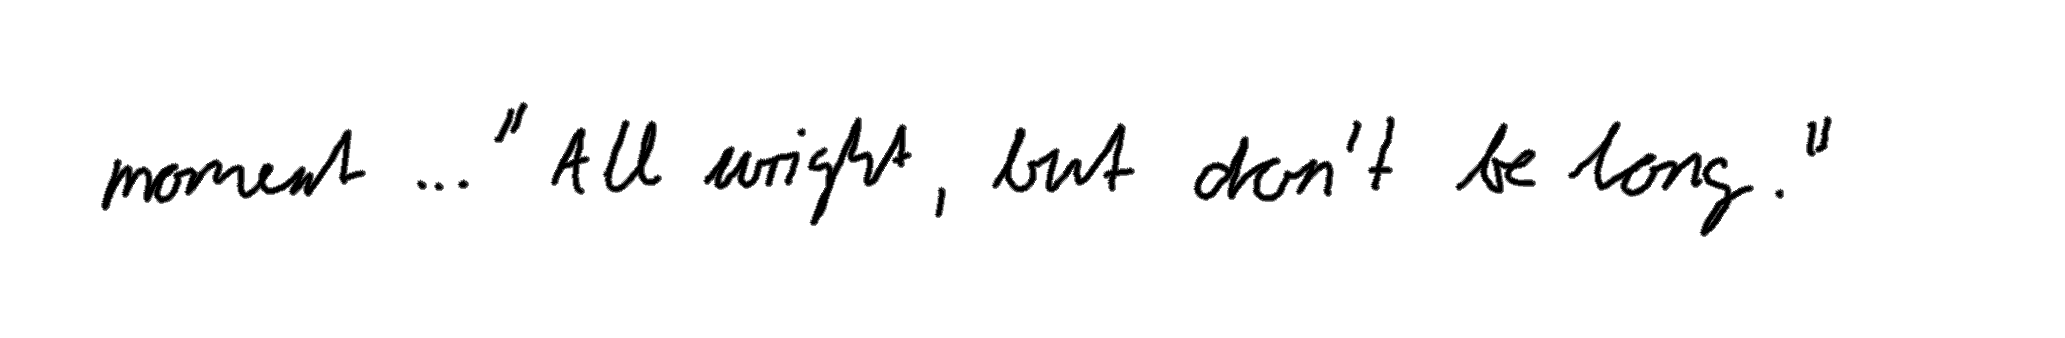 moment ... "All wright, but don't be long."